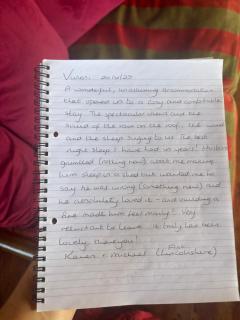 20/10/23
A wonderful, unassuming accommodation
that opened us to a cosy and comfortable
stay. The spectacular views and the
sound of the rain on the roof, the wind
and the sheep singing to us. The best
night sleep I have had in years!
grumbled (nothing new) about me making
him sleep in a shed but wanted me to
say he was wrong (something new) and
he absolutely loved it - and building a
fire made him feel manly! Very
reluctant to leave. It really has been
lovely, thank you!
Karen + Michael